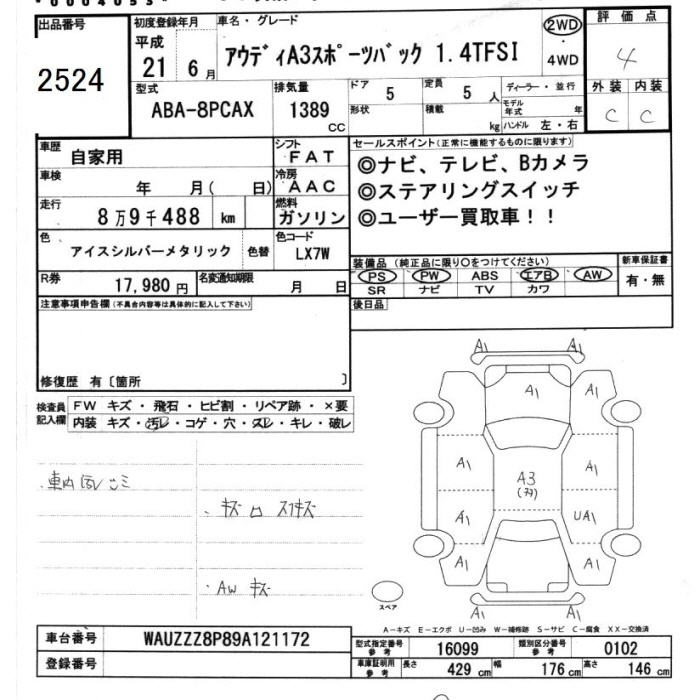 出品番号
2524
初度登録年月
平成
21 6 月
車名・グレード
アウディA3スポーツバック 1.4TFSI
2WD
4WD
評価点
4
外装 内装
C C
型式
ABA-8PCAX
排気量
1389
CC
ドア 5
定員 5 人
形状
積載 kg
ディーラー・並行
モデル年式 年
ハンドル 左・右
車歴
自家用
シフト
FAT
車検
年 月( 日)
冷房
AAC
走行
8万9千488 km
燃料
ガソリン
色
アイスシルバーメタリック
色替
色コード
LX7W
R券
17,980 円
名変通知期限
月 日
セールスポイント(正常に機能するものに限ります)
◎ナビ、テレビ、Bカメラ
◎ステアリングスイッチ
◎ユーザー買取車!!
装備品(純正品に限り○をつけてください)
PS PW ABS エアB AW
SR ナビ TV カワ
新車保証書
有・無
後日品
注意事項申告欄(不具合内容等は具体的に記入して下さい)
修復歴 有〔箇所 〕
検査員記入欄
FW キズ・飛石・ヒビ割・リペア跡・×要
内装 キズ・汚レ・コゲ・穴・スレ・キレ・破レ
・AW キズ
A1 A1
A1
A1 A1
A1 A1
A3
A1 UA1
A1 A1 A1
A1 A1
スペア
A-キズ E-エクボ U-凹み W-補修跡 S-サビ C-腐食 XX-交換済
車台番号
WAUZZZ8P89A121172
登録番号
型式指定番号 参考
16099
類別区分番号 参考
0102
車庫証明用 参考
長さ 429 cm
幅 176 cm
高さ 146 cm